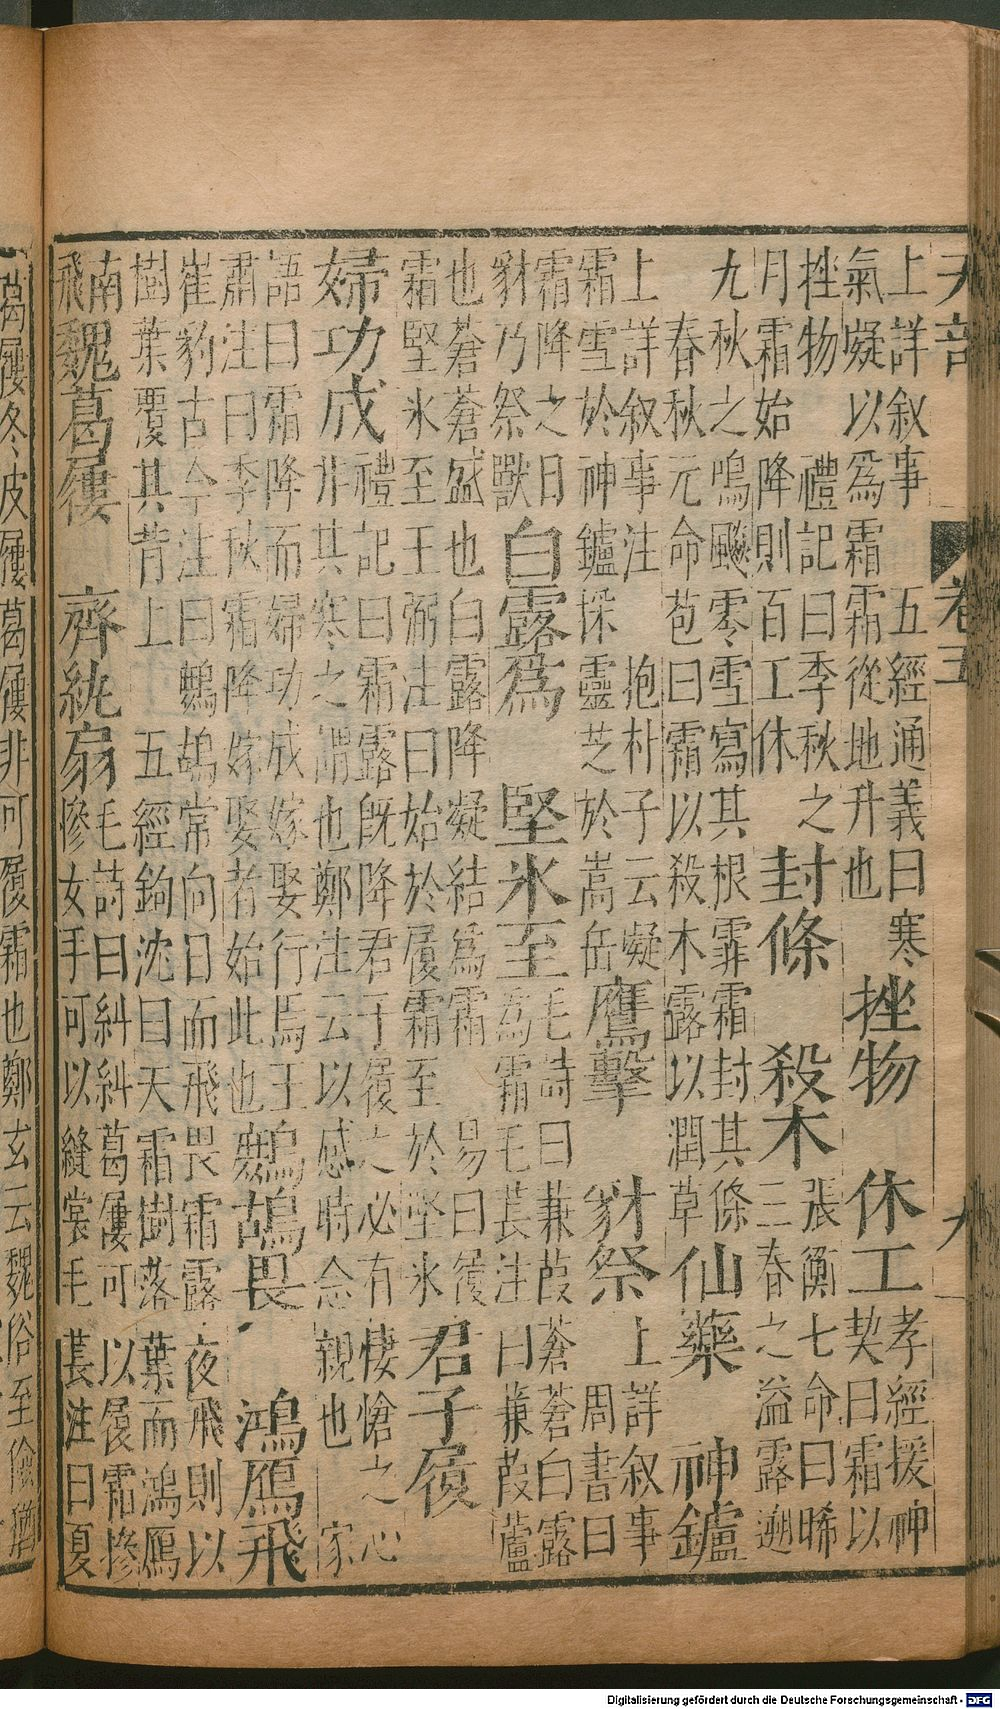 天部　卷五　九
上詳叙事　五經通義曰寒
氣凝以爲霜霜從地升也
挫物　休工
孝經援神
契曰霜以
挫物　禮記曰季秋之
月霜始降則百工休
封條　殺木
張衡七命曰晞
三春之溢露遡
九秋之鳴飈零雪寫其根霏霜封其條
春秋元命苞曰霜以殺木露以潤草
仙藥　神鑪
上詳叙事注　抱朴子云凝
霜雪於神鑪採靈芝於嵩岳
鷹擊　豺祭
上詳叙事
周書曰
霜降之日
豺乃祭獸
白露爲　堅氷至
毛詩曰蒹葭蒼蒼白露
爲霜毛萇注曰蒹葭蘆
也蒼蒼盛也白露降凝結爲霜　易曰履
霜堅氷至王弼注曰始於履霜至於堅氷
君子履
婦功成
禮記曰霜露既降君子履之必有悽愴之心
非其寒之謂也鄭注云以感時念親也　家
語曰霜降而婦功成嫁娶行焉王
肅注曰季秋霜降嫁娶者始此也
鷓鴣畏　鴻鴈飛
崔豹古今注曰鷓鴣常向日而飛畏霜露夜飛則以
樹葉覆其背上　五經鉤沈曰天霜樹落葉而鴻鴈
南
飛
魏葛屨　齊紈扇
毛詩曰糾糾葛屨可以履霜摻
摻女手可以縫裳毛萇注曰夏
葛屨冬皮屨葛屨非可履霜也鄭玄云魏俗至儉猶
Digitalisierung gefördert durch die Deutsche Forschungsgemeinschaft - DFG